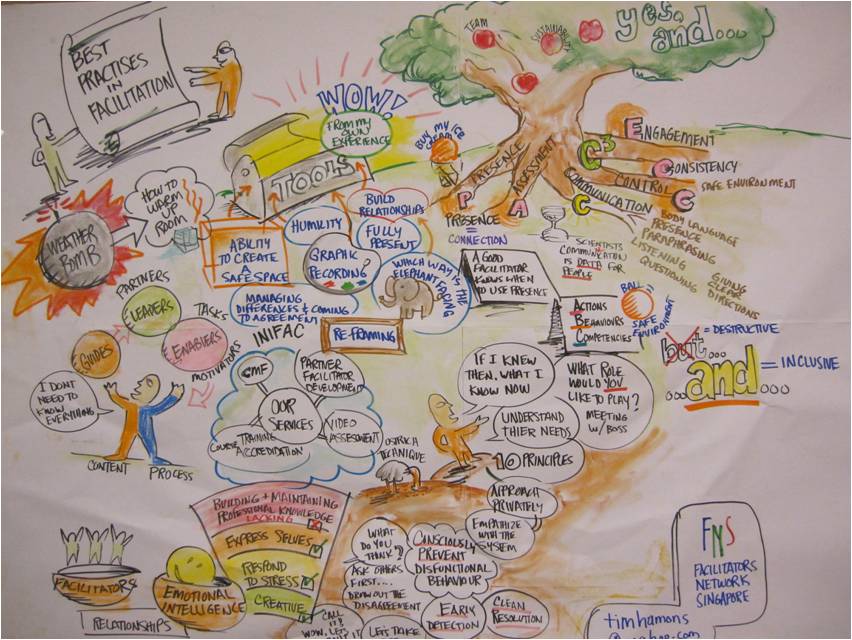 BEST
PRACTISES
IN
FACILITATION
WOW!
FROM MY
OWN
EXPERIENCE
TOOLS
TEAM
SUSTAINABILITY
yes,
and...
BUY MY ICE
CREAM
PRESENCE
ASSESSMENT
COMMUNICATION
CONTROL
P
A
C
C
C3
ENGAGEMENT
CONSISTENCY
SAFE ENVIRONMENT
PRESENCE
=
CONNECTION
SCIENTISTS
COMMUNICATION
IS DATA FOR
PEOPLE
BODY LANGUAGE
PRESENCE
PARAPHRASING
LISTENING
QUESTIONING
GIVING
CLEAR
DIRECTIONS
WEATHER
BOMB
HOW TO
WARM
UP
ROOM
ABILITY
TO CREATE
A
SAFE SPACE
HUMILITY
BUILD
RELATIONSHIPS
FULLY
PRESENT
GRAPHIC
RECORDING?
WHICH WAY IS THE
ELEPHANT FACING
MANAGING
DIFFERENCES & COMING
TO AGREEMENT
A GOOD
FACILITATOR
KNOWS WHEN
TO USE PRESENCE
ACTIONS
BEHAVIOURS
COMPETENCIES
BALL =
SAFE
ENVIRONMENT
but... = DESTRUCTIVE
...and... = INCLUSIVE
PARTNERS
LEADERS
TASKS
ENABLERS
MOTIVATORS
GUIDES
I DONT
NEED TO
KNOW
EVERYTHING
CONTENT
PROCESS
INIFAC
RE-FRAMING
CMF
PARTNER
FACILITATOR
DEVELOPMENT
OUR
SERVICES
VIDEO
ASSESSMENT
COURSE
TRAINING
ACCREDIDATION
IF I KNEW
THEN, WHAT I
KNOW NOW
WHAT ROLE
WOULD YOU
LIKE TO PLAY?
MEETING
W/ BOSS
UNDERSTAND
THIER NEEDS
10 PRINCIPLES
OSTRICH
TECHNIQUE
APPROACH
PRIVATELY
EMPATHIZE
WITH THE
SYSTEM
BUILDING + MAINTAINING
PROFESSIONAL KNOWLEDGE
LACKING
EXPRESS SELVES
RESPOND
TO STRESS
CREATIVE
FACILITATORS
EMOTIONAL
INTELLIGENCE
RELATIONSHIPS
WHAT
DO YOU
THINK?
ASK OTHERS
FIRST....
DRAW OUT THE
DISAGREEMENT
CONSCIOUSLY
PREVENT
DISFUNCTIONAL
BEHAVIOUR
EARLY
DETECTION
CLEAN
RESOLUTION
CALL
IT!
WOW, LETS
LET'S TAKE
FNS
FACILITATORS
NETWORK
SINGAPORE
timhamons